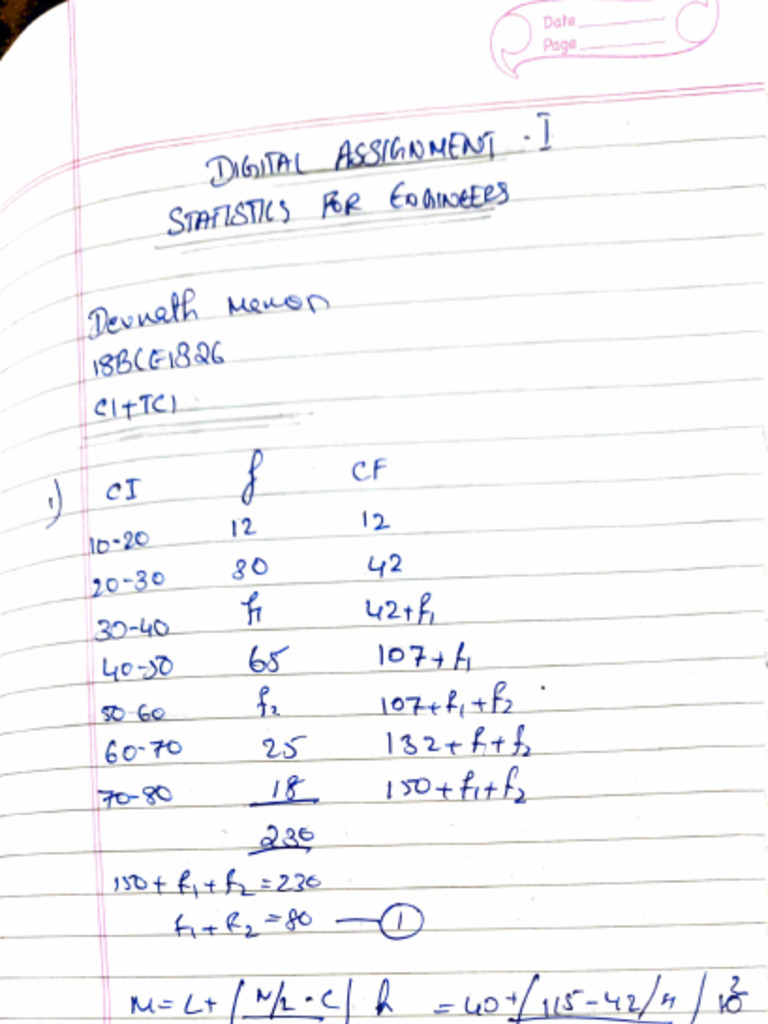 Date
Page
DIGITAL ASSIGNMENT - I
STATISTICS FOR ENGINEERS
Devnath Menon
18BCE1326
C1+TC1
1) CI f CF
10-20 12 12
20-30 30 42
30-40 f1 42+f1
40-50 65 107+f1
50-60 f2 107+f1+f2
60-70 25 132+f1+f2
70-80 18 150+f1+f2
230
150+f1+f2=230
f1+f2=80 — 1
M=L+(N/2-C) h =40+(115-42